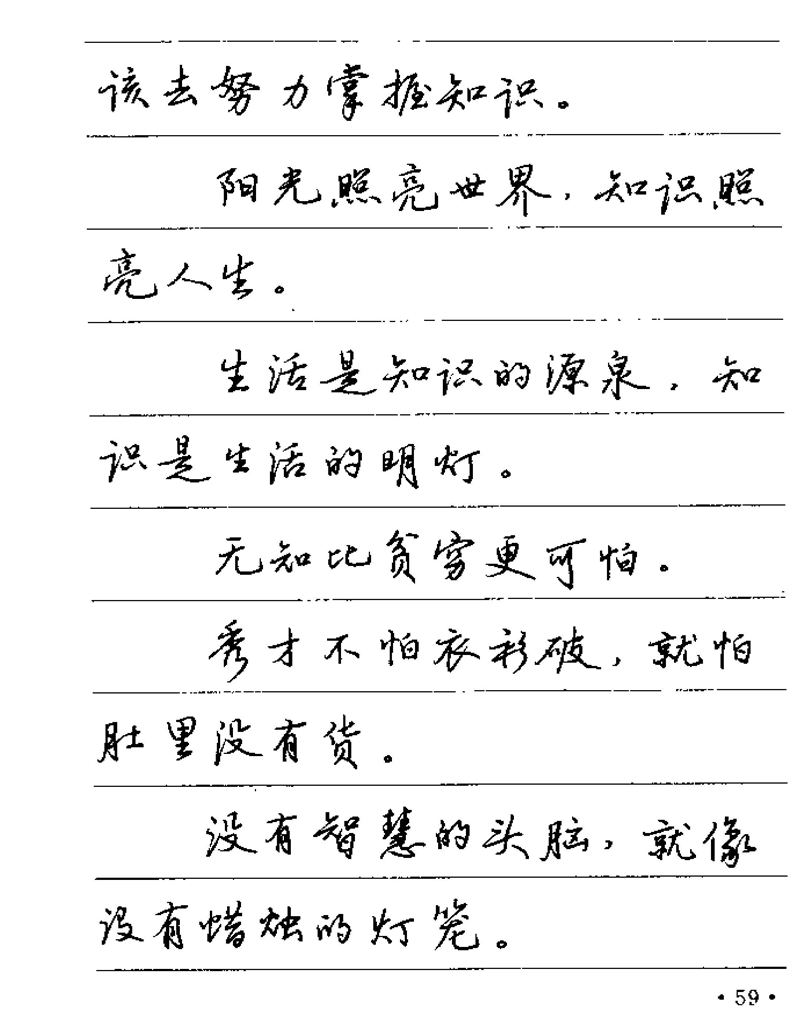 该去努力掌握知识。
阳光照亮世界,知识照
亮人生。
生活是知识的源泉,知
识是生活的明灯。
无知比贫穷更可怕。
秀才不怕衣衫破,就怕
肚里没有货。
没有智慧的头脑,就像
没有蜡烛的灯笼。
·59·